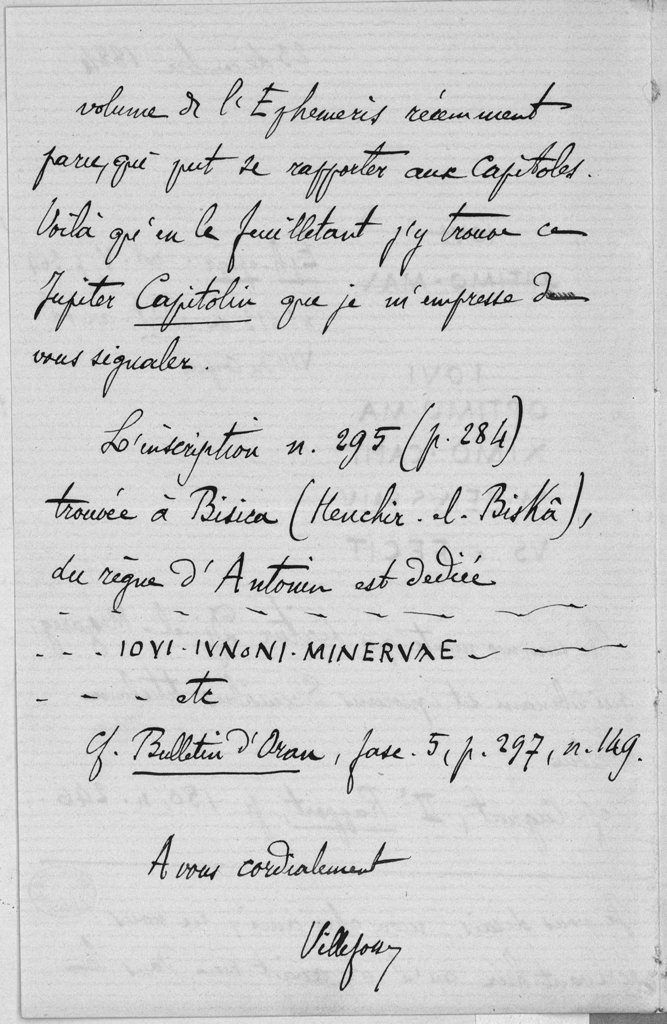 volume de l'Ephemeris récemment
paru, qui put se rapporter aux Capitoles.
Voilà qu'en le feuilletant j'y trouve ce
Jupiter Capitolin que je m'empresse de
vous signaler.
L'inscription n. 295 (p. 284)
trouvée à Bisica (Henchir-el-Biskâ),
du règne d'Antonin est dédiée
- - - IOVI·IVNONI·MINERVAE - - -
- - - etc
Cf. Bulletin d'Oran, fasc. 5, p. 297, n. 149.
A vous cordialement
Villefosse